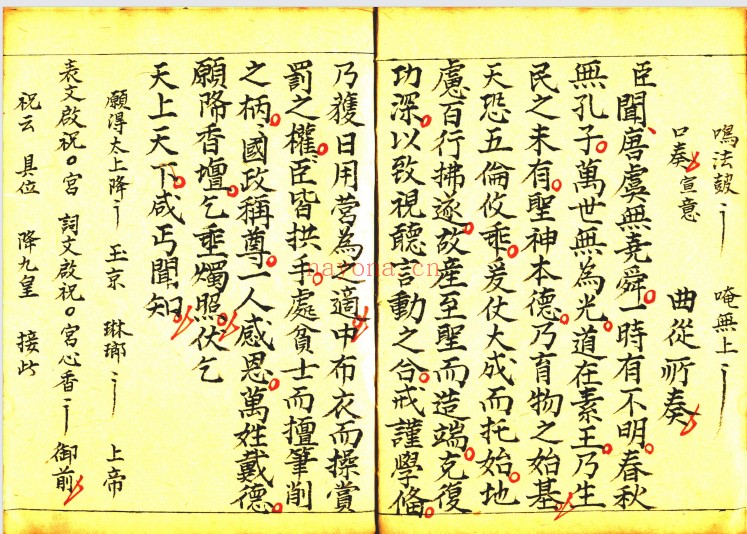 鳴法鼓〻 唵無上〻
口奏宣意 曲從所奏
臣聞唐虞無堯舜一時有不明春秋
無孔子萬世無為光道在素王乃生
民之未有聖神本德乃育物之始基
天恐五倫攸乖爰仗大成而托始地
慮百行拂逐故產至聖而造端克復
功深以致視聽言動之合戒謹學俻
乃獲日用营為之適中布衣而操賞
罰之權臣皆拱手處貧士而擅筆削
之柄國政稱尊一人感恩萬姓戴德
願降香壇乞垂燭照伏乞
天上天下咸丐聞知
願得太上降〻 玉京 琳瑯〻 上帝
表文啟祝宮 詞文啟祝宮心香〻 御前
祝云 具位 降九皇 接此
nayona.cn